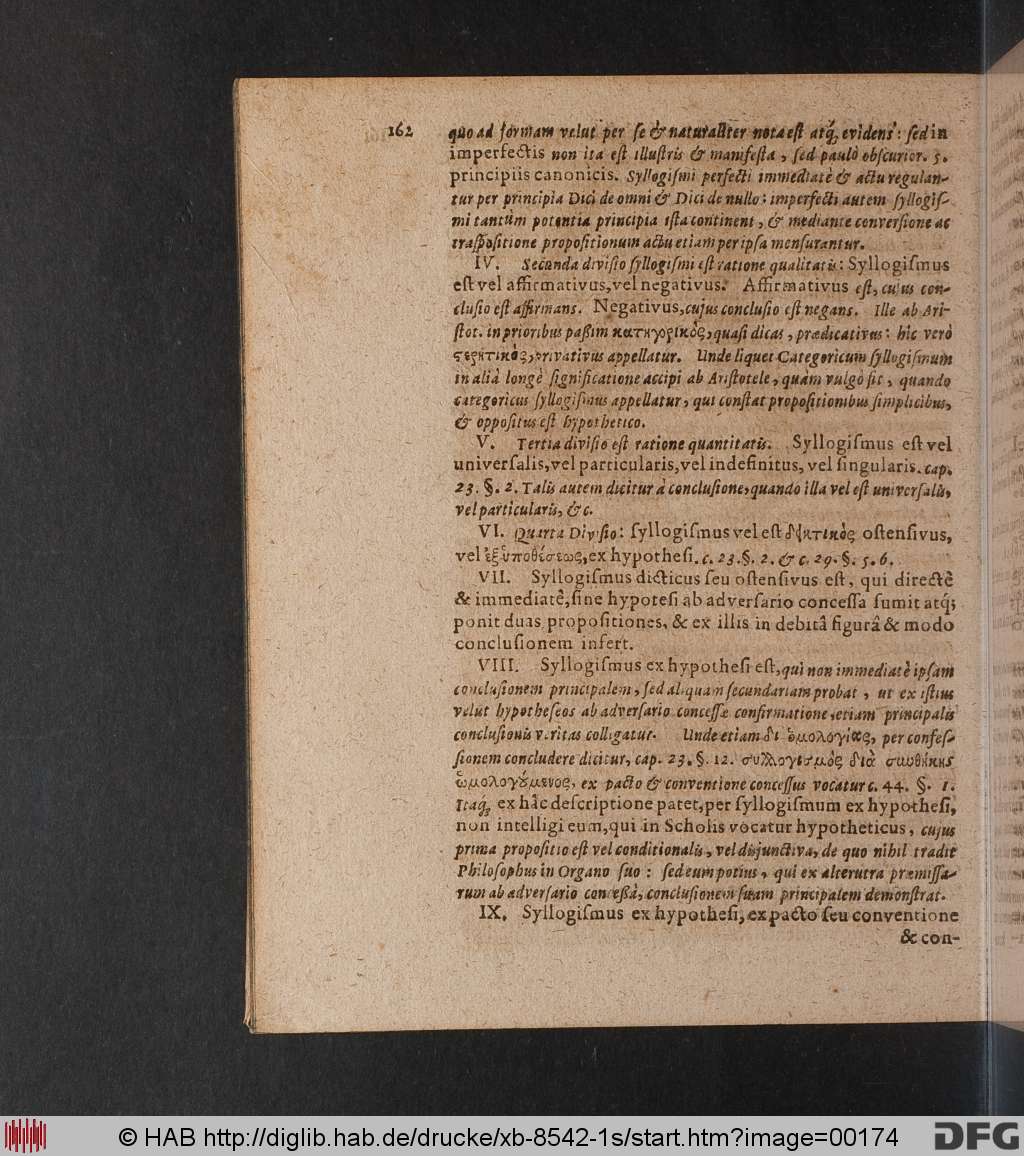 162
quo ad formam velut per se & naturaliter nota est atq́; evidens: sed in
imperfectis non ita est illustris & manifesta, sed paulò obscurior. 5.
principiis canonicis. Syllogismi perfecti immediatè & actu regulan-
tur per principia Dici de omni & Dici de nullo: imperfecti autem syllogis-
mi tantùm potentia principia ista continent, & mediante conversione ac
traspositione propositionum actu etiam per ipsa mensurantur.
IV. Secunda divisio syllogismi est ratione qualitatis: Syllogismus
est vel affirmativus, vel negativus. Affirmativus est, cujus con-
clusio est affirmans. Negativus, cujus conclusio est negans. Ille ab Ari-
stot. in prioribus paßim κατηγορικὸς, quasi dicas, prædicativus: hic verò
στερητικὸς, privativus appellatur. Unde liquet Categoricum syllogismum
in aliâ longè significatione accipi ab Aristotele, quàm vulgò fit, quando
categoricus syllogismus appellatur, qui constat propositionibus simplicibus,
& oppositus est hypothetico.
V. Tertia divisio est ratione quantitatis. Syllogismus est vel
universalis, vel particularis, vel indefinitus, vel singularis. cap.
23. §. 2. Talis autem dicitur à conclusione, quando illa vel est universalis,
vel particularis, &c.
VI. Quarta Divisio: syllogismus vel est δεικτικὸς ostensivus,
vel ἐξ ὑποθέσεως, ex hypothesi. c. 23. §. 2. & c. 29. §. 5. 6.
VII. Syllogismus dicticus seu ostensivus est, qui directè
& immediatê, sine hypotesi ab adversario concessa sumit atq́;
ponit duas propositiones, & ex illis in debitâ figurâ & modo
conclusionem infert.
VIII. Syllogismus ex hypothesi est, qui non immediatè ipsam
conclusionem principalem, sed aliquam secundariam probat, ut ex istius
velut hypotheseos ab adversario concessæ confirmatione, etiam principalis
conclusionis veritas colligatur. Unde etiam δι ὁμολογίας, per confes-
sionem concludere dicitur, cap. 23. §. 12. συλλογισμὸς διὰ συνθήκης
ὡμολογούμενος, ex pacto & conventione concessus vocatur c. 44. §. 1.
Itaq́; ex hâc descriptione patet, per syllogismum ex hypothesi,
non intelligi eum, qui in Scholis vocatur hypotheticus, cujus
prima propositio est vel conditionalis, vel disjunctiva, de quo nihil tradit
Philosophus in Organo suo: sed eum potius, qui ex alterutra præmissa-
rum ab adversario conceßâ, conclusionem suam principalem demonstrat.
IX. Syllogismus ex hypothesi, ex pacto seu conventione
& con-
© HAB http://diglib.hab.de/drucke/xb-8542-1s/start.htm?image=00174
DFG